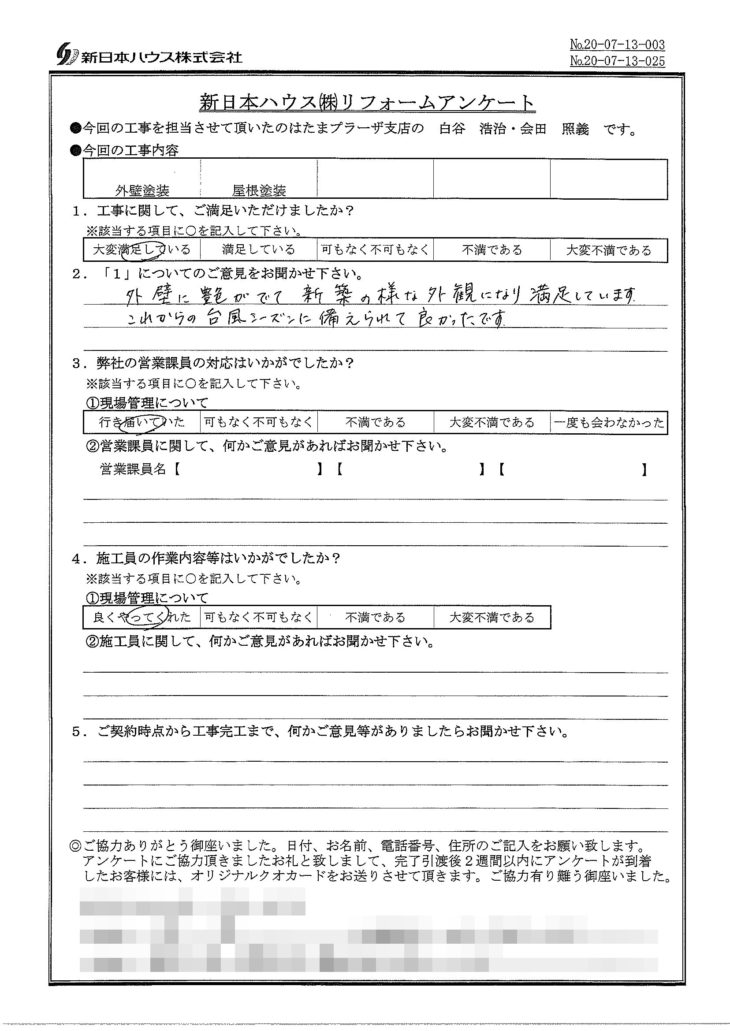 新日本ハウス株式会社
№20-07-13-003
№20-07-13-025
新日本ハウス㈱リフォームアンケート
●今回の工事を担当させて頂いたのはたまプラーザ支店の 白谷 浩治・会田 照義 です。
●今回の工事内容
外壁塗装 屋根塗装
1．工事に関して、ご満足いただけましたか？
※該当する項目に○を記入して下さい。
大変満足している 満足している 可もなく不可もなく 不満である 大変不満である
2．「1」についてのご意見をお聞かせ下さい。
外壁に艶がでて新築の様な外観になり満足しています
これからの台風シーズンに備えられて良かったです
3．弊社の営業課員の対応はいかがでしたか？
※該当する項目に○を記入して下さい。
①現場管理について
行き届いていた 可もなく不可もなく 不満である 大変不満である 一度も会わなかった
②営業課員に関して、何かご意見があればお聞かせ下さい。
営業課員名【 】【 】【 】
4．施工員の作業内容等はいかがでしたか？
※該当する項目に○を記入して下さい。
①現場管理について
良くやってくれた 可もなく不可もなく 不満である 大変不満である
②施工員に関して、何かご意見があればお聞かせ下さい。
5．ご契約時点から工事完工まで、何かご意見等がありましたらお聞かせ下さい。
◎ご協力ありがとう御座いました。日付、お名前、電話番号、住所のご記入をお願い致します。
アンケートにご協力頂きましたお礼と致しまして、完了引渡後２週間以内にアンケートが到着
したお客様には、オリジナルクオカードをお送りさせて頂きます。ご協力有り難う御座いました。